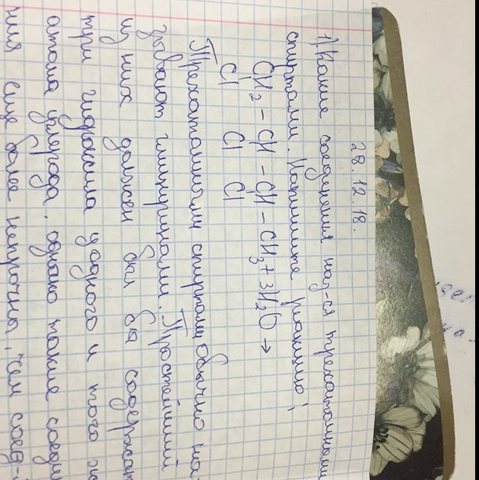 28.12.18.
1) Какие соединения наз-ся трехатомными
спиртами. Напишите реакцию:
CH2 – CH – CH – CH3 + 3H2O →
Cl Cl Cl
Трехатомными спиртами обычно на-
зывают глицеринами. Простейший
из них должен был бы содержат
три гидроксила у одного и того ж
атома углерода, однако такие соеди
ния еще более непрочны, чем соед-